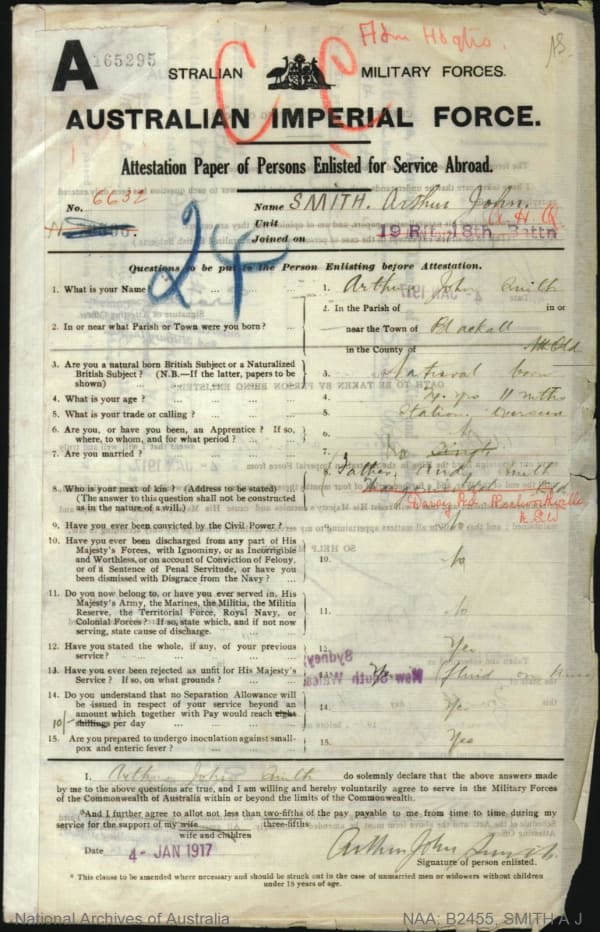 A
165295
Adm Hdqrs.
CC
STRALIAN MILITARY FORCES.
AUSTRALIAN IMPERIAL FORCE.
Attestation Paper of Persons Enlisted for Service Abroad.
No. 6632 Name SMITH. Arthur John.
Unit 19 Rft. 18th Battn A.H.Q
Joined on
24
Questions to be put to the Person Enlisting before Attestation.
1. What is your Name 1. Arthur John Smith
2. In or near what Parish or Town were you born? 2. In the Parish of in or
near the Town of Blackall
in the County of Qld
3. Are you a natural born British Subject or a Naturalized
British Subject? (N.B.—If the latter, papers to be
shown) 3. Natural born
4. What is your age? 4. yrs 11 mths
5. What is your trade or calling? 5. Station overseer
6. Are you, or have you been, an Apprentice? If so,
where, to whom, and for what period? 6. No
7. Are you married? 7. No Single
8. Who is your next of kin? (Address to be stated) 8. Father, Smith
(The answer to this question shall not be construed
as in the nature of a will.) Qld
N.S.W
9. Have you ever been convicted by the Civil Power? 9. No
10. Have you ever been discharged from any part of His
Majesty's Forces, with Ignominy, or as Incorrigible
and Worthless, or on account of Conviction of Felony,
or of a Sentence of Penal Servitude, or have you
been dismissed with Disgrace from the Navy? 10. No
11. Do you now belong to, or have you ever served in, His
Majesty's Army, the Marines, the Militia, the Militia
Reserve, the Territorial Force, Royal Navy, or
Colonial Forces? If so, state which, and if not now
serving, state cause of discharge. 11. No
12. Have you stated the whole, if any, of your previous
service? 12. Yes
13. Have you ever been rejected as unfit for His Majesty's
Service? If so, on what grounds? 13. Yes fluid on knee
14. Do you understand that no Separation Allowance will
be issued in respect of your service beyond an
amount which together with Pay would reach eight
10/- shillings per day 14. Yes
15. Are you prepared to undergo inoculation against small-
pox and enteric fever? 15. Yes
I, Arthur John Smith do solemnly declare that the above answers made
by me to the above questions are true, and I am willing and hereby voluntarily agree to serve in the Military Forces
of the Commonwealth of Australia within or beyond the limits of the Commonwealth.
*And I further agree to allot not less than two-fifths of the pay payable to me from time to time during my
three-fifths
service for the support of my wife
wife and children
Date 4- JAN 1917 Arthur John Smith
Signature of person enlisted.
* This clause to be amended where necessary and should be struck out in the case of unmarried men or widowers without children
under 18 years of age.
National Archives of Australia NAA: B2455, SMITH A J